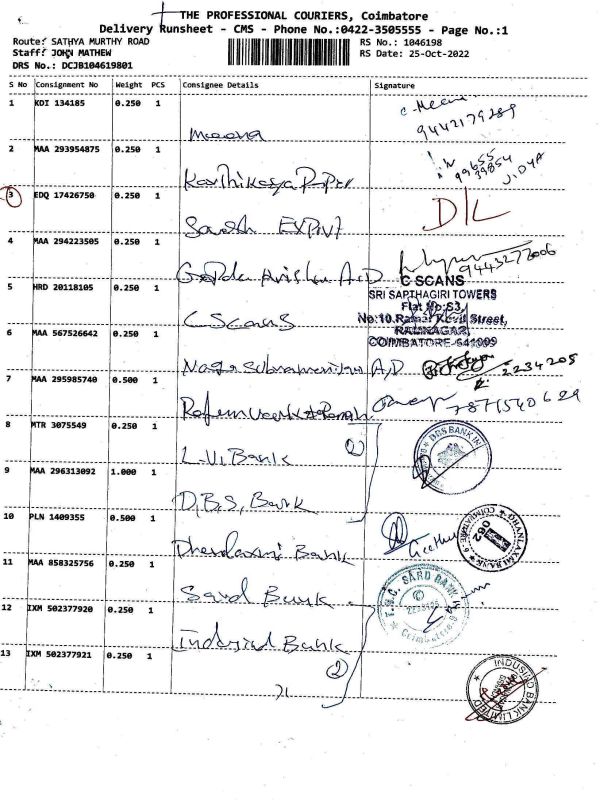 THE PROFESSIONAL COURIERS, Coimbatore
Delivery Runsheet - CMS - Phone No.:0422-3505555 - Page No.:1
Route: SATHYA MURTHY ROAD RS No.: 1046198
Staff: JOHN MATHEW RS Date: 25-Oct-2022
DRS No.: DCJB104619801
S No Consignment No Weight PCS Consignee Details Signature
1 KDI 134185 0.250 1
Meena 9442179289
2 MAA 293954875 0.250 1
3 EDQ 17426750 0.250 1
D/L
4 MAA 294223505 0.250 1
9443277006
5 HRD 20118105 0.250 1
C Scans
C SCANS
SRI SAPTHAGIRI TOWERS
Flat No:S3,
No:10, Street,
RAMNAGAR,
COIMBATORE-641009
6 MAA 567526642 0.250 1
A/D 2234205
7 MAA 295985740 0.500 1
7871540629
8 MTR 3075549 0.250 1
L.V. Bank
DBS BANK IN
9 MAA 296313092 1.000 1
D.B.S, Bank
(2)
10 PLN 1409355 0.500 1
Dhanlaxmi Bank Geethu
DHANLAXMI BANK
COIMBATORE
062
11 MAA 858325756 0.250 1
Sard Bank
SARD BANK
Coimbatore
12 IXM 502377920 0.250 1
Indusind Bank
(2)
13 IXM 502377921 0.250 1
INDUSIND BANK LIMITED